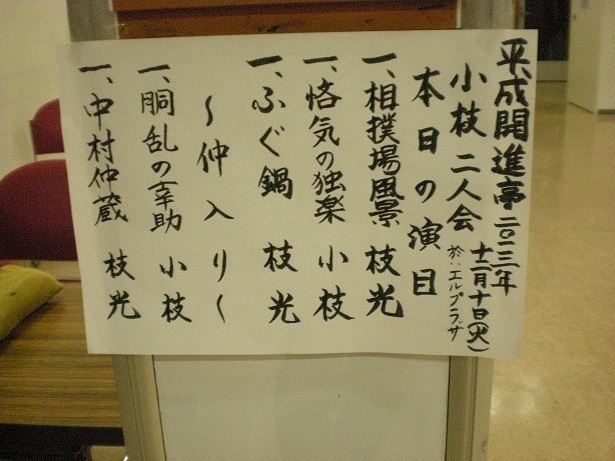 平成開進亭 二〇一三年
小枝二人会 十二月十日(火)
於：エルプラザ
本日の演目
一、相撲場風景 枝光
一、悋気の独楽 小枝
一、ふぐ鍋 枝光
〜仲入り〜
一、胴乱の幸助 小枝
一、中村仲蔵 枝光